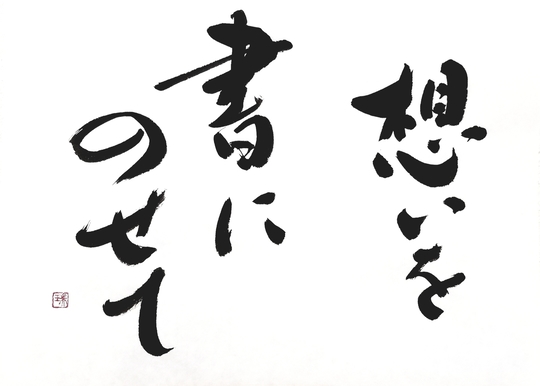 想いを
書に
のせて